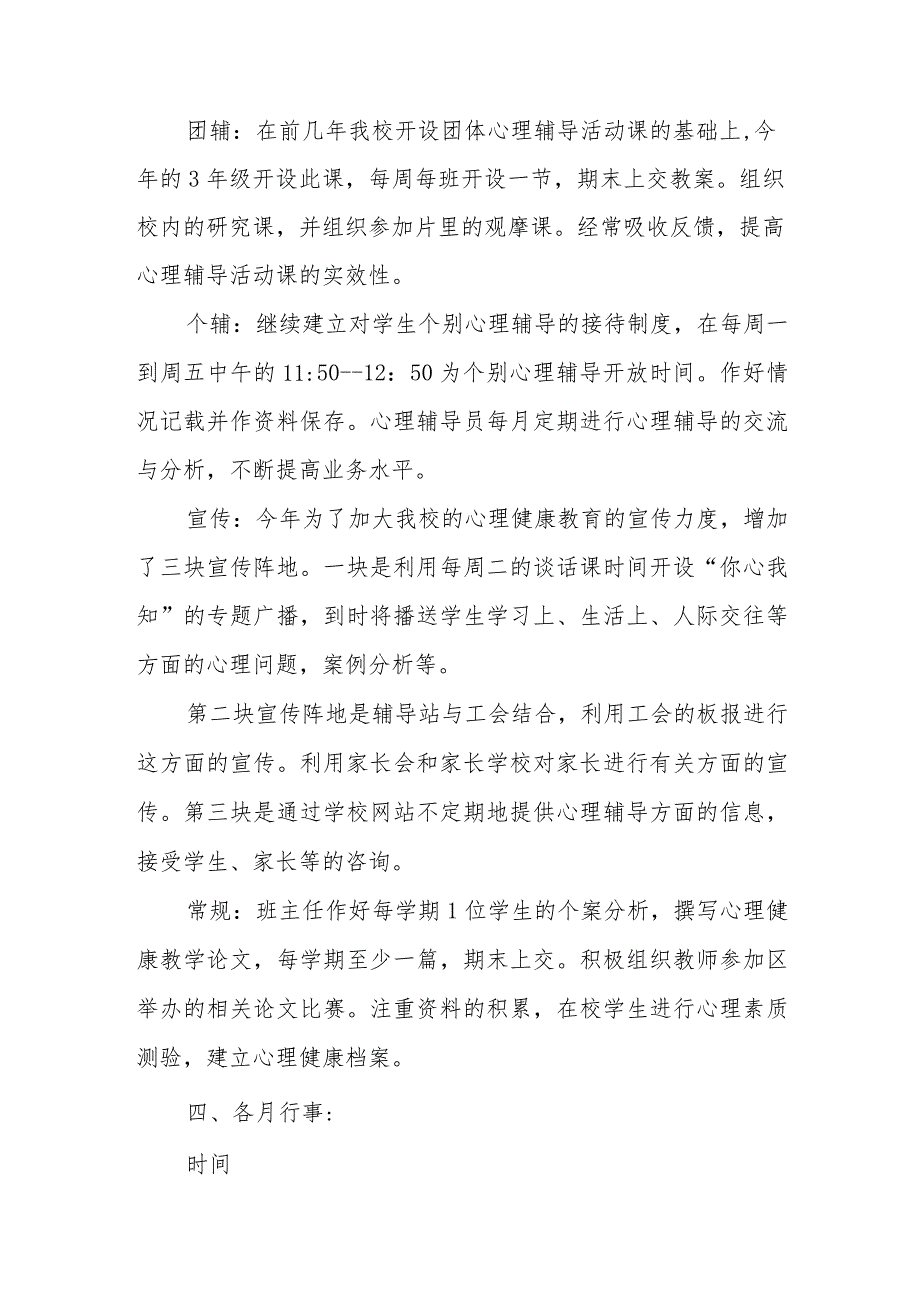 团辅：在前几年我校开设团体心理辅导活动课的基础上,今
年的3年级开设此课，每周每班开设一节，期末上交教案。组织
校内的研究课，并组织参加片里的观摩课。经常吸收反馈，提高
心理辅导活动课的实效性。
个辅：继续建立对学生个别心理辅导的接待制度，在每周一
到周五中午的11:50--12：50为个别心理辅导开放时间。作好情
况记载并作资料保存。心理辅导员每月定期进行心理辅导的交流
与分析，不断提高业务水平。
宣传：今年为了加大我校的心理健康教育的宣传力度，增加
了三块宣传阵地。一块是利用每周二的谈话课时间开设“你心我
知”的专题广播，到时将播送学生学习上、生活上、人际交往等
方面的心理问题，案例分析等。
第二块宣传阵地是辅导站与工会结合，利用工会的板报进行
这方面的宣传。利用家长会和家长学校对家长进行有关方面的宣
传。第三块是通过学校网站不定期地提供心理辅导方面的信息，
接受学生、家长等的咨询。
常规：班主任作好每学期1位学生的个案分析，撰写心理健
康教学论文，每学期至少一篇，期末上交。积极组织教师参加区
举办的相关论文比赛。注重资料的积累，在校学生进行心理素质
测验，建立心理健康档案。
四、各月行事:
时间